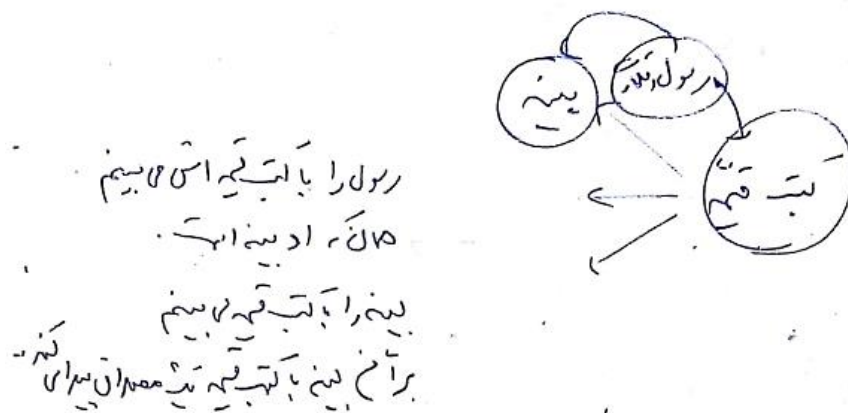 بینه
رسول
کتب قیّمة
رسول را با کتب قیمه اش می بینم
که او بینه است.
بینه را با کتب قیمه می بینم
بینه با کتب قیمه مصداق پیدا می کند.